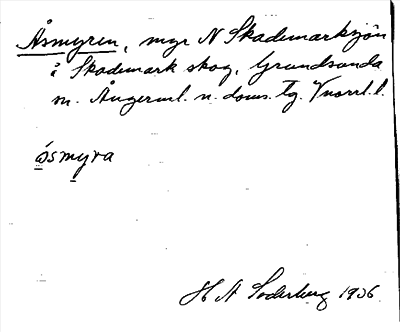 Åsmyren, myr N Skademarksjön
å Skademark skog, Grundsunda
sn. Ångerml. n. doms. tg. Vnorrl. l.
ósmyra
H A Söderberg 1936